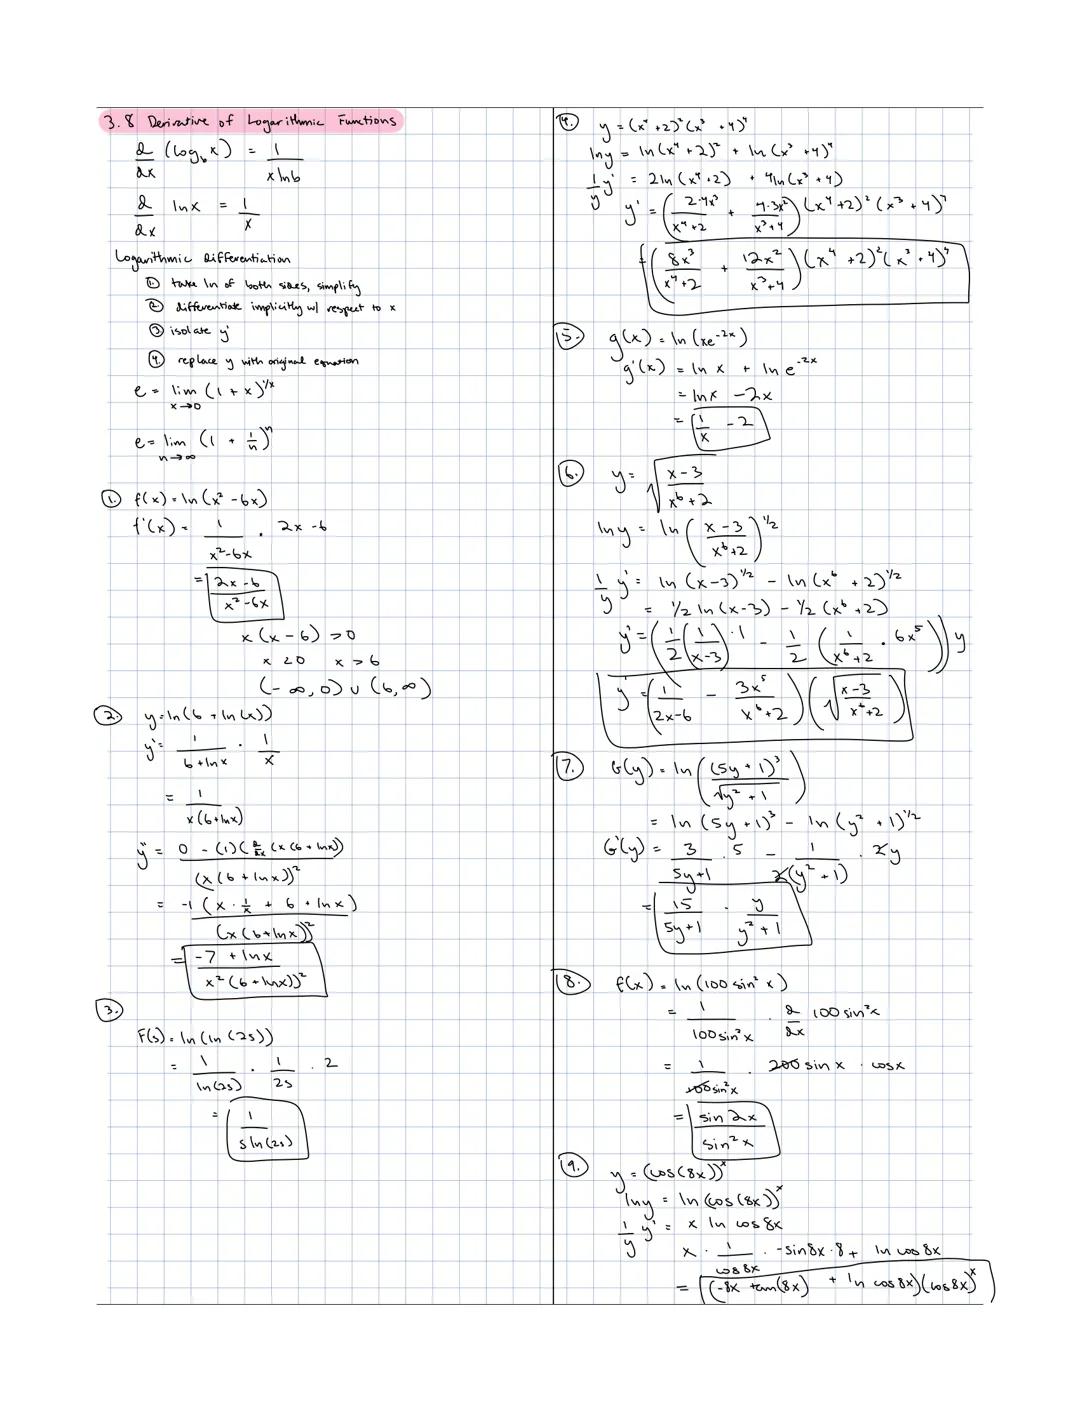 3.8 Derivative of Logarithmic Functions
d/dx (log_b x) = 1/(x ln b)
d/dx ln x = 1/x
Logarithmic Differentiation
① take ln of both sides, simplify
② differentiate implicitly w/ respect to x
③ isolate y'
④ replace y with original equation
e = lim_{x→0} (1 + x)^{1/x}
e = lim_{n→∞} (1 + 1/n)^n
1. f(x) = ln(x² - 6x)
f'(x) = 1/(x² - 6x) · 2x - 6
= (2x - 6)/(x² - 6x)
x(x - 6) > 0
x < 0 x > 6
(-∞, 0) ∪ (6, ∞)
2. y = ln(6 + ln(x))
y' = 1/(6 + ln x) · 1/x
= 1/(x(6 + ln x))
y'' = (0 - (1)(d/dx (x(6 + ln x)))/(x(6 + ln x))²
= -1(x · 1/x + 6 + ln x)/(x(6 + ln x))²
= (-7 + ln x)/(x²(6 + ln x))²
3.
F(s) = ln(ln(2s))
= 1/ln(2s) · 1/2s · 2
= 1/(s ln(2s))
4. y = (x⁴ + 2)²(x³ + 4)⁴
ln y = ln(x⁴ + 2)² + ln(x³ + 4)⁴
1/y y' = 2 ln(x⁴ + 2) + 4 ln(x³ + 4)
y' = (2·4x³/(x⁴ + 2) + 4·3x²/(x³ + 4))(x⁴ + 2)²(x³ + 4)⁴
= (8x³/(x⁴ + 2) + 12x²/(x³ + 4))(x⁴ + 2)²(x³ + 4)⁴
5. g(x) = ln(xe^{-2x})
g'(x) = ln x + ln e^{-2x}
= ln x - 2x
= 1/x - 2
6. y = √((x - 3)/(x⁶ + 2))
ln y = ln((x - 3)/(x⁶ + 2))^{1/2}
1/y y' = ln(x - 3)^{1/2} - ln(x⁶ + 2)^{1/2}
= 1/2 ln(x - 3) - 1/2(x⁶ + 2)
y' = (1/2(1/(x - 3)) · 1 - 1/2(1/(x⁶ + 2) · 6x⁵))y
y' = (1/(2x - 6) - 3x⁵/(x⁶ + 2))(√((x - 3)/(x⁶ + 2)))
7. G(y) = ln((5y + 1)³/√(y² + 1))
= ln(5y + 1)³ - ln(y² + 1)^{1/2}
G'(y) = 3/(5y + 1) · 5 - 1/(2(y² + 1)) · 2y
= 15/(5y + 1) - y/(y² + 1)
8. f(x) = ln(100 sin² x)
= 1/(100 sin² x) · d/dx 100 sin² x
= 1/(100 sin² x) · 200 sin x · cos x
= sin 2x/sin² x
9. y = (cos(8x))^x
ln y = ln(cos(8x))^x
1/y y' = x ln cos 8x
x · 1/cos 8x · -sin 8x · 8 + ln cos 8x
= (-8x tan(8x) + ln cos 8x)(cos 8x)^x